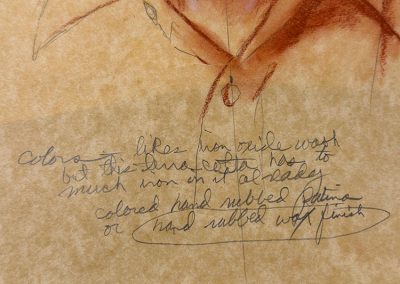 colors – likes iron oxide wash
but this terra cotta has to
much iron in it already
colored hand rubbed patina
or hand rubbed wax finish